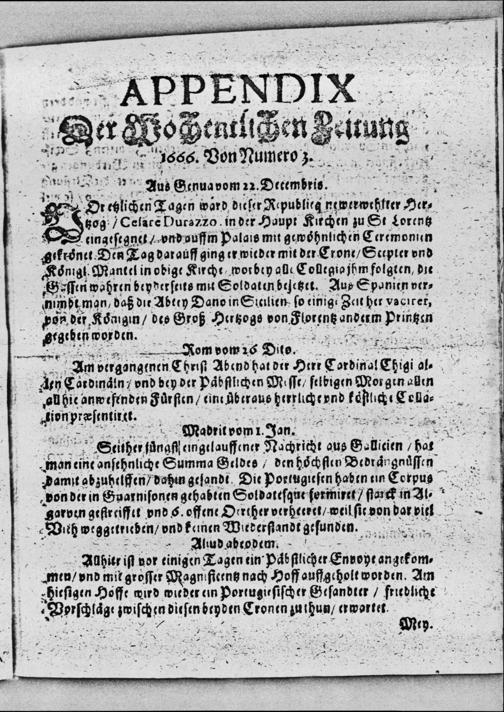 APPENDIX
Der Wöchentlichen Zeitung
1666. Von Numero 3.
Aus Genua vom 22. Decembris.
VOr etzlichen Tagen ward dieser Republicq newerwehlter Her-
tzog / Cesare Durazzo, in der Haupt Kirchen zu St Lorentz
eingesegnet / und auffm Palais mit gewöhnlichen Ceremonien
gekrönet. Den Tag darauff ging er wieder mit der Crone / Scepter und
Königl. Mantel in obige Kirche / worbey alle Collegia jhm folgten, die
Gassen wahren beyderseits mit Soldaten besetzet. Aus Spanien ver-
nimbt man, daß die Abtey Dano in Sicilien, so einige Zeit her vaciret,
von der Königin / des Groß Hertzogs von Florentz anderm Printzen
gegeben worden.
Rom vom 26 Dito.
Am vergangenen Christ Abend hat der Herr Cardinal Chigi al-
len Cardinäln / und bey der Päbstlichen Messe / selbigen Morgen allen
allhie anwesenden Fürsten / eine überaus herrliche und köstliche Colla-
tion præsentiret.
Madrit vom 1. Jan.
Seither jüngst eingelauffener Nachricht aus Gallicien / hat
man eine ansehnliche Summa Geldes / den höchsten Bedrängnüssen
damit abzuhelffen / dahin gesandt. Die Portugiesen haben ein Corpus
von der in Guarnisonen gehabten Soldatesque formiret / starck in Al-
garven gestreiffet und 6. offene Oerther verheeret / weil sie von dar viel
Vieh weggetrieben / und keinen Wiederstandt gefunden.
Aliud ab eodem.
Allhier ist vor einigen Tagen ein Päbstlicher Envoye angekom-
men / und mit grosser Magnificentz nach Hoff auffgeholt worden. Am
hiesigen Hoffe wird wieder ein Portugiesischer Gesandter / friedliche
Vorschläge zwischen diesen beyden Cronen zu thun / erwartet.
Mey.